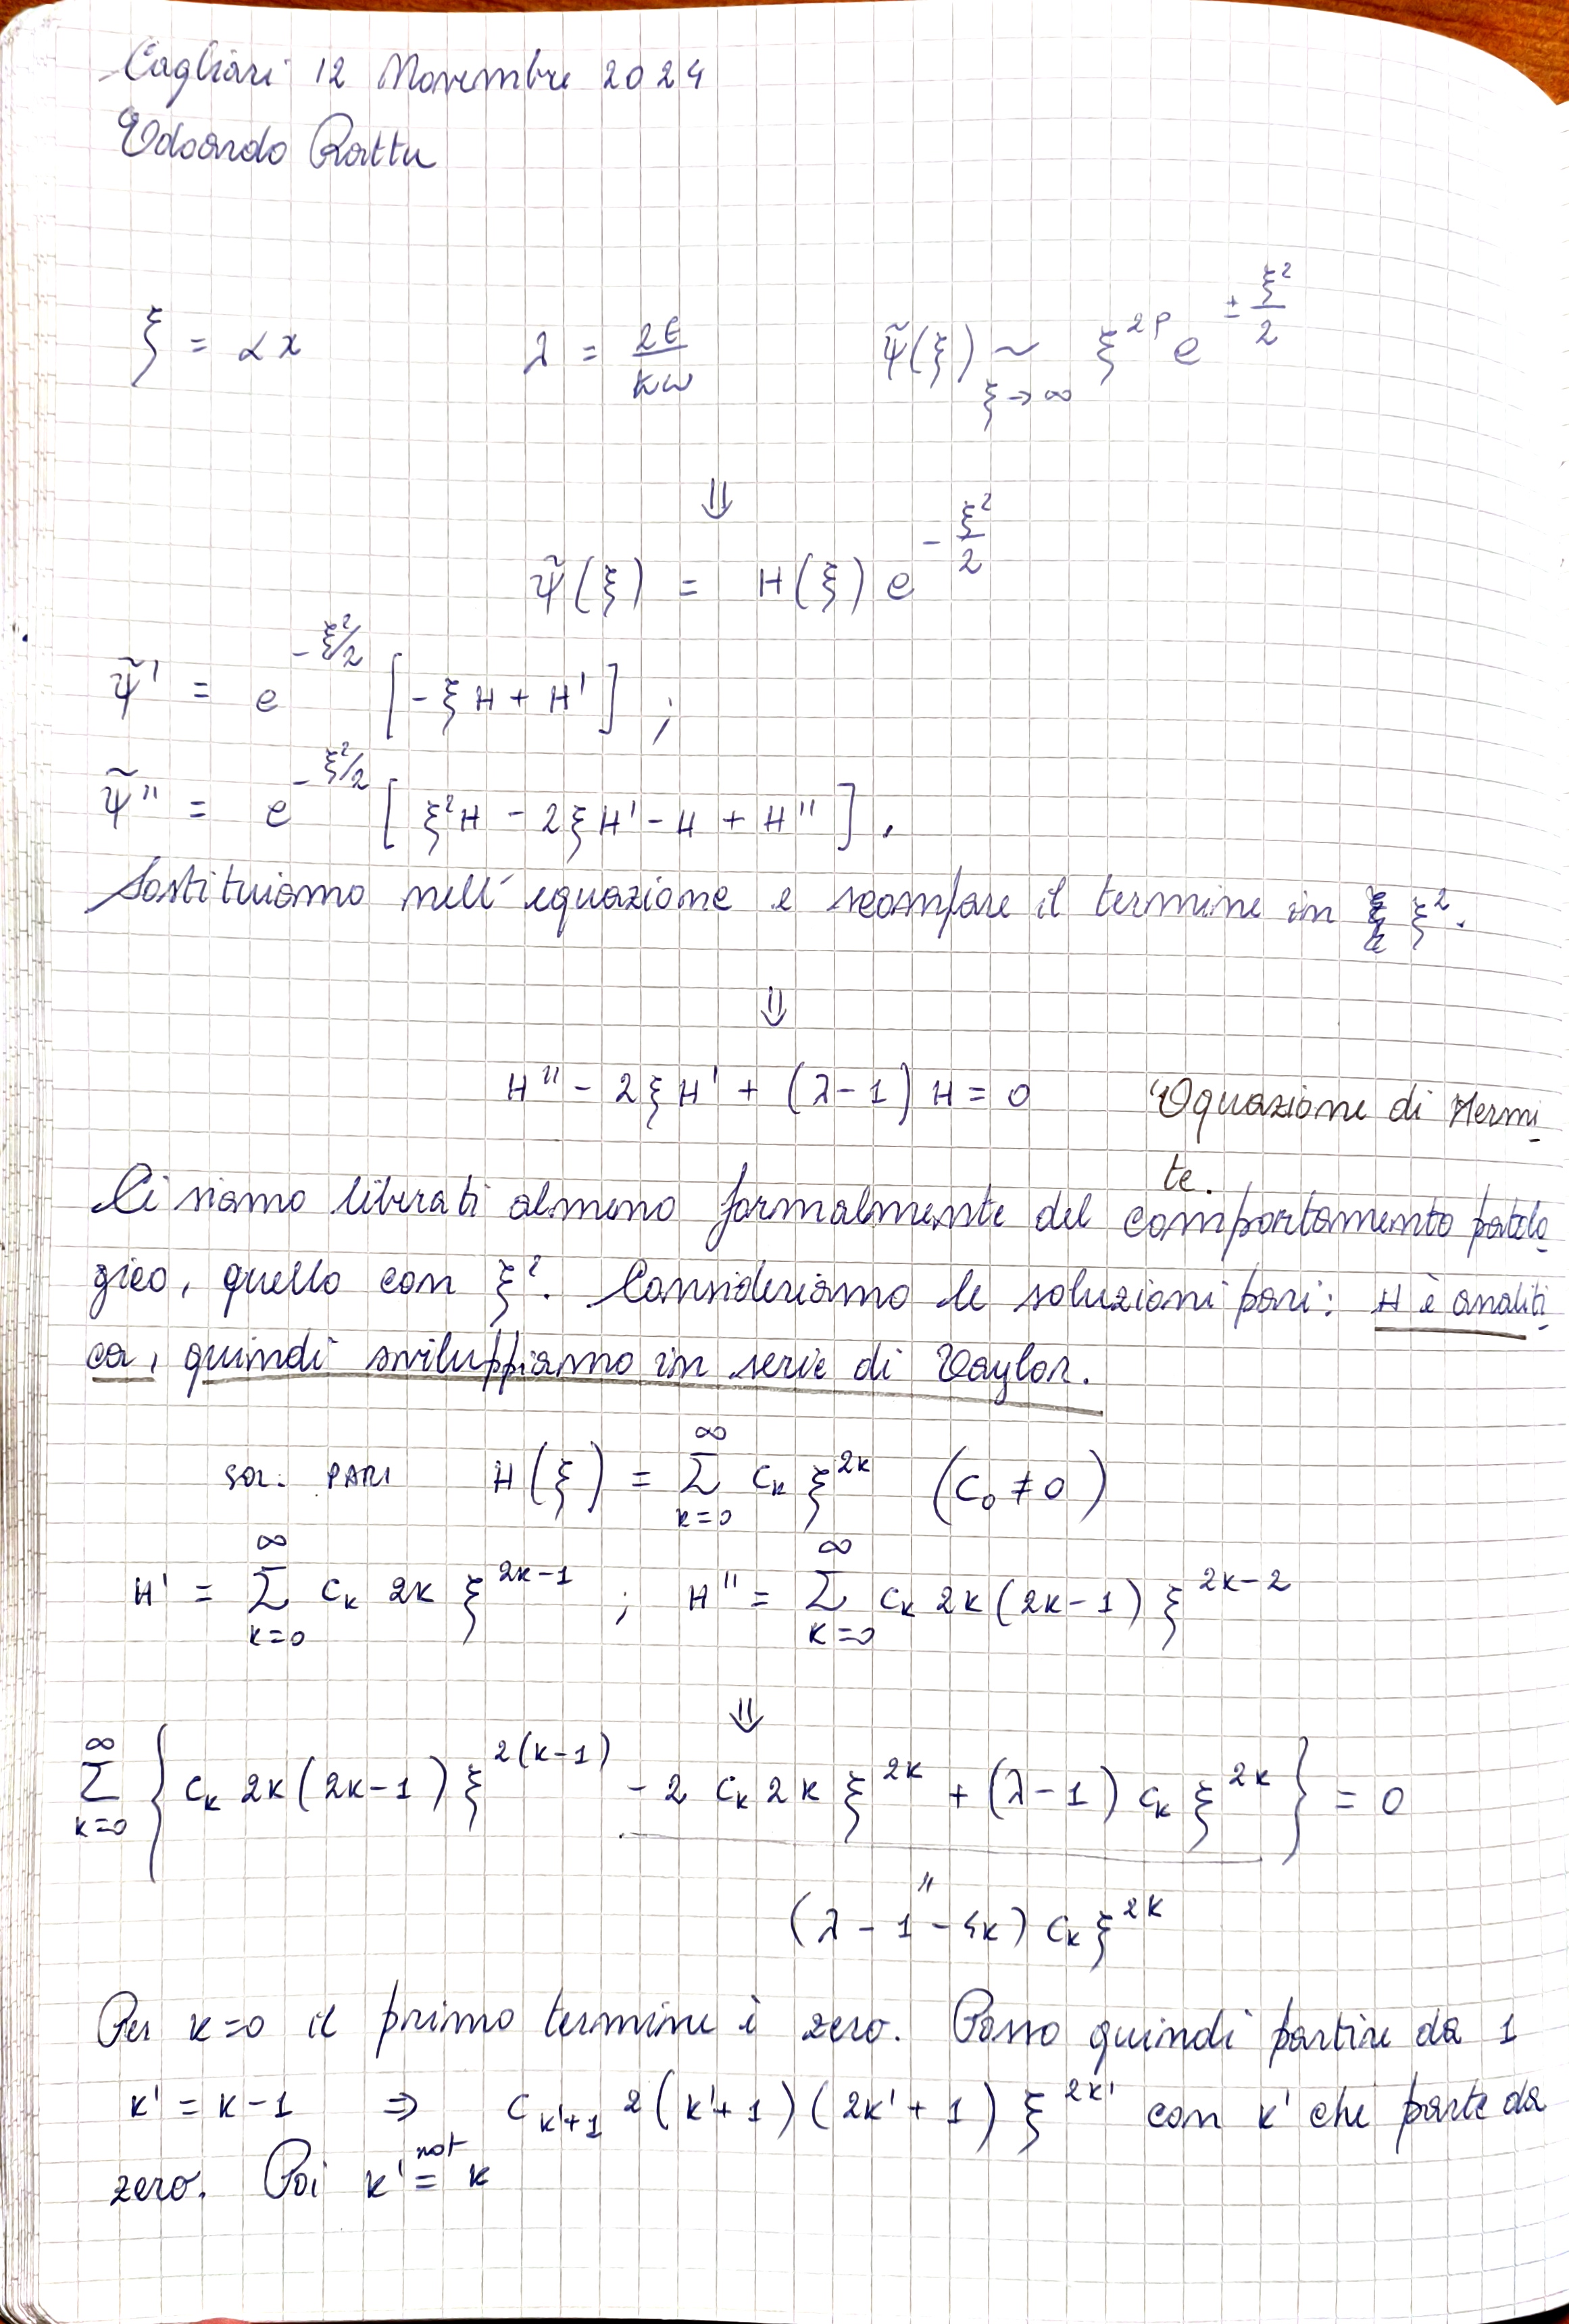 Cagliari 12 Novembre 2024
Edoardo Rattu
ξ = αx λ = 2E/ħω ψ̃(ξ) ~ ξ^{2p} e^{± ξ²/2}
ξ→∞
⇓
ψ̃(ξ) = H(ξ) e^{- ξ²/2}
ψ̃' = e^{-ξ²/2} [-ξH + H'] ;
ψ̃'' = e^{-ξ²/2} [ξ²H - 2ξH' - H + H''] .
Sostituiamo nell'equazione e scompare il termine in ξ².
⇓
H'' - 2ξH' + (λ-1) H = 0 Equazione di Hermi-
te.
Ci siamo liberati almeno formalmente del comportamento patolo-
gico, quello con ξ². Consideriamo le soluzioni pari: H è analiti-
ca, quindi sviluppiamo in serie di Taylor.
SOL. PARI H(ξ) = Σ_{k=0}^{∞} c_k ξ^{2k} (c_0 ≠ 0)
H' = Σ_{k=0}^{∞} c_k 2k ξ^{2k-1} ; H'' = Σ_{k=0}^{∞} c_k 2k(2k-1) ξ^{2k-2}
⇓
Σ_{k=0}^{∞} { c_k 2k(2k-1) ξ^{2(k-1)} - 2 c_k 2k ξ^{2k} + (λ-1) c_k ξ^{2k} } = 0
"
(λ - 1 - 4k) c_k ξ^{2k}
Per k=0 il primo termine è zero. Posso quindi partire da 1
k' = k-1 ⇒ c_{k'+1} 2(k'+1)(2k'+1) ξ^{2k'} con k' che parte da
zero. Poi k' not= k